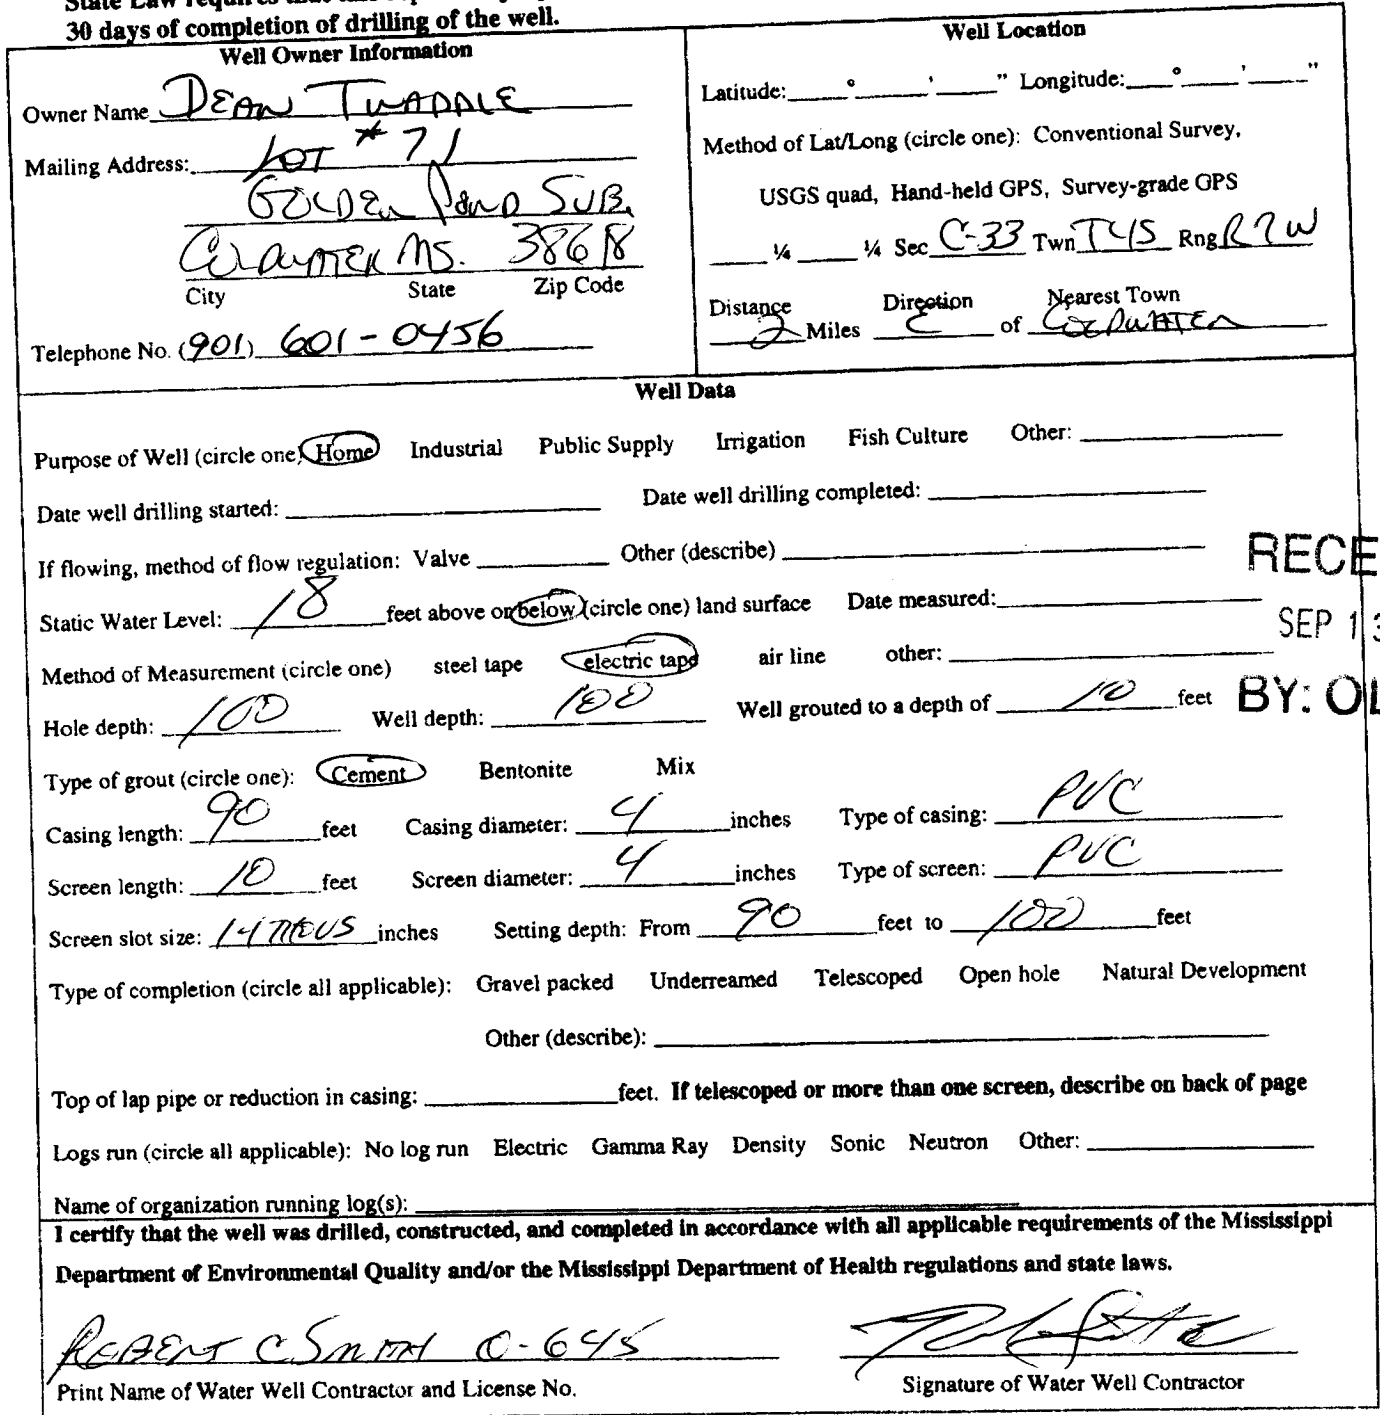 30 days of completion of drilling of the well.
Well Owner Information
Owner Name DEAN TWADDLE
Mailing Address: LOT #71
GOLDEN POND SUB.
COLDWATER MS. 38618
City State Zip Code
Telephone No. (901) 601-0456
Well Location
Latitude: ____°____'____" Longitude: ____°____'____"
Method of Lat/Long (circle one): Conventional Survey,
USGS quad, Hand-held GPS, Survey-grade GPS
____ ¼ ____ ¼ Sec C-33 Twn T4S Rng R7W
Distance Direction Nearest Town
2 Miles E of COLDWATER
Well Data
Purpose of Well (circle one) Home Industrial Public Supply Irrigation Fish Culture Other: ____
Date well drilling started: ____ Date well drilling completed: ____
If flowing, method of flow regulation: Valve ____ Other (describe) ____
RECE
Static Water Level: 18 feet above or below (circle one) land surface Date measured: ____
SEP 13
Method of Measurement (circle one) steel tape electric tape air line other: ____
Hole depth: 100 Well depth: 100 Well grouted to a depth of 10 feet
BY: OL
Type of grout (circle one): Cement Bentonite Mix
Casing length: 90 feet Casing diameter: 4 inches Type of casing: PVC
Screen length: 10 feet Screen diameter: 4 inches Type of screen: PVC
Screen slot size: 14 inches Setting depth: From 90 feet to 100 feet
Type of completion (circle all applicable): Gravel packed Underreamed Telescoped Open hole Natural Development
Other (describe): ____
Top of lap pipe or reduction in casing: ____ feet. If telescoped or more than one screen, describe on back of page
Logs run (circle all applicable): No log run Electric Gamma Ray Density Sonic Neutron Other: ____
Name of organization running log(s): ____
I certify that the well was drilled, constructed, and completed in accordance with all applicable requirements of the Mississippi
Department of Environmental Quality and/or the Mississippi Department of Health regulations and state laws.
ROBERT C SMITH 0-645
Print Name of Water Well Contractor and License No.
Signature of Water Well Contractor